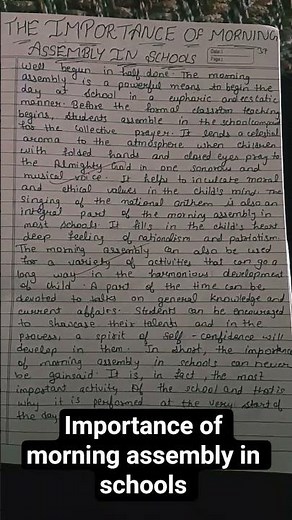 THE IMPORTANCE OF MORNING
ASSEMBLY IN SCHOOLS
Date
Page
Well begun in half done. The morning
assembly is a powerful means to begin the
day at school in a euphoric and ecstatic
manner. Before the formal classroom teaching
begins, students assemble in the school compound
for the collective prayer. It lends a celestial
aroma to the atmosphere when children
with folded hands and closed eyes pray to
the Almighty God in one sonorous and
musical voice. It helps to inculcate moral
and ethical values in the child's mind. The
singing of the national anthem is also an
integral part of the morning assembly in
most schools. It fills in the child's heart
deep feeling of nationalism and patriotism.
The morning assembly can also be used
for a variety of activities that can go a
long way in the harmonious development
of child. A part of the time can be
devoted to talks on general knowledge and
current affairs. Students can be encouraged
to showcase their talents and in the
process, a spirit of self-confidence will
develop in them. In short, the importance
of morning assembly in schools can never
be gainsaid. It is, in fact, the most
important activity of the school and that is
why it is performed at the very start of
the day
Importance of
morning assembly in
schools